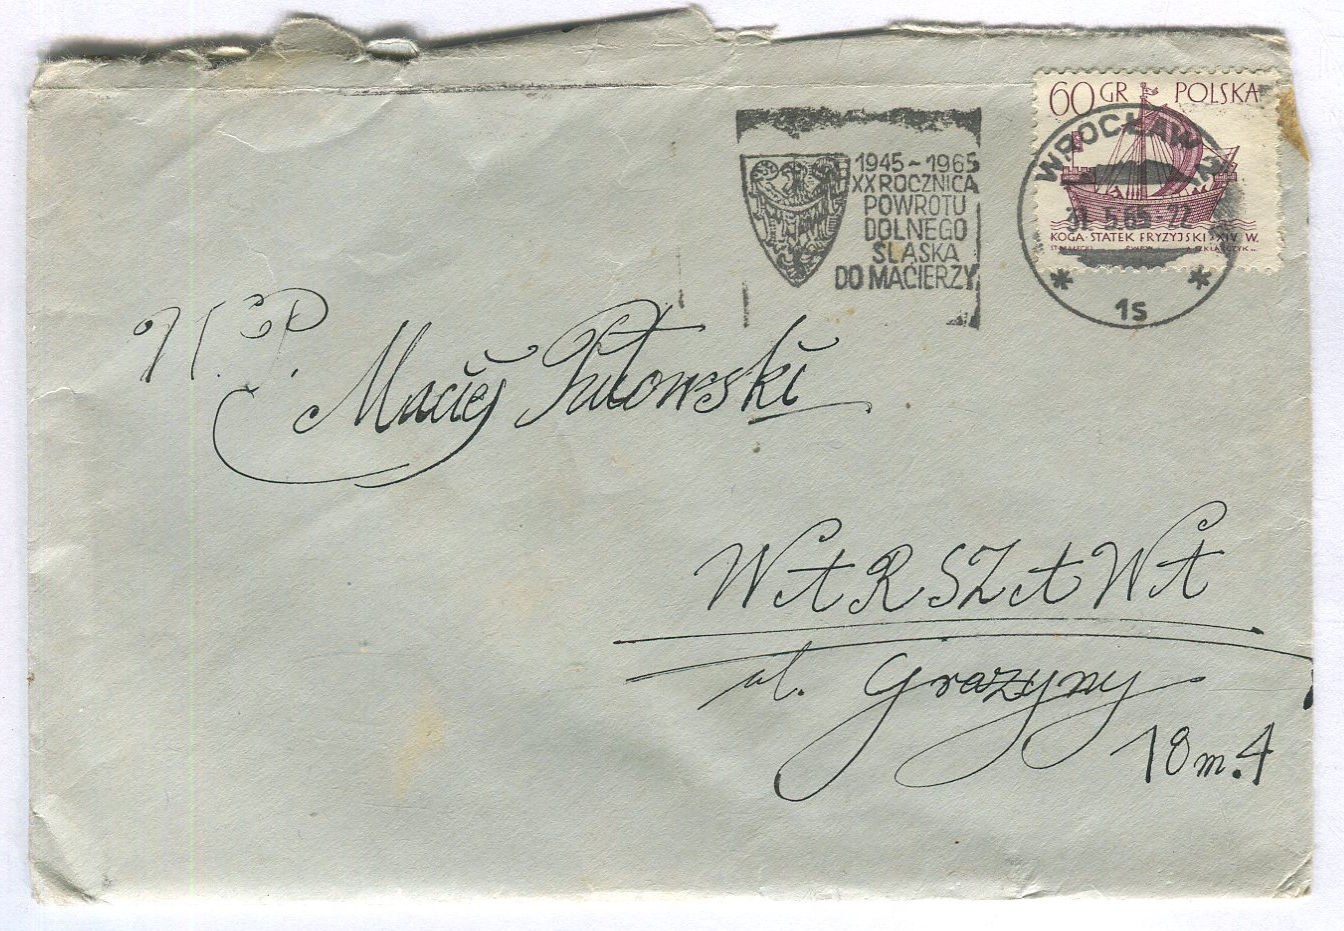 60 GR POLSKA
WROCŁAW 2
31.5.65-22
KOGA-STATEK FRYZYJSKI XIV W.
1s
1945-1965
XX ROCZNICA
POWROTU
DOLNEGO
ŚLĄSKA
DO MACIERZY
W.P.
Maciej Putowski
WARSZAWA
ul. Grażyny
18 m. 4